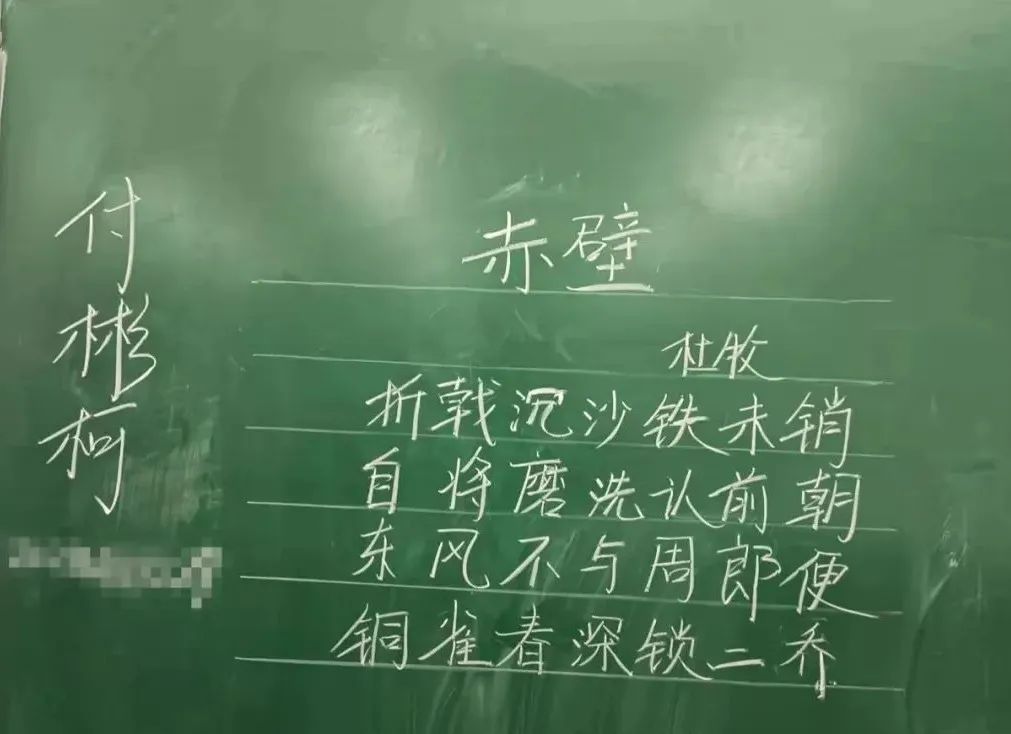 付彬柯
赤壁
杜牧
折戟沉沙铁未销
自将磨洗认前朝
东风不与周郎便
铜雀春深锁二乔